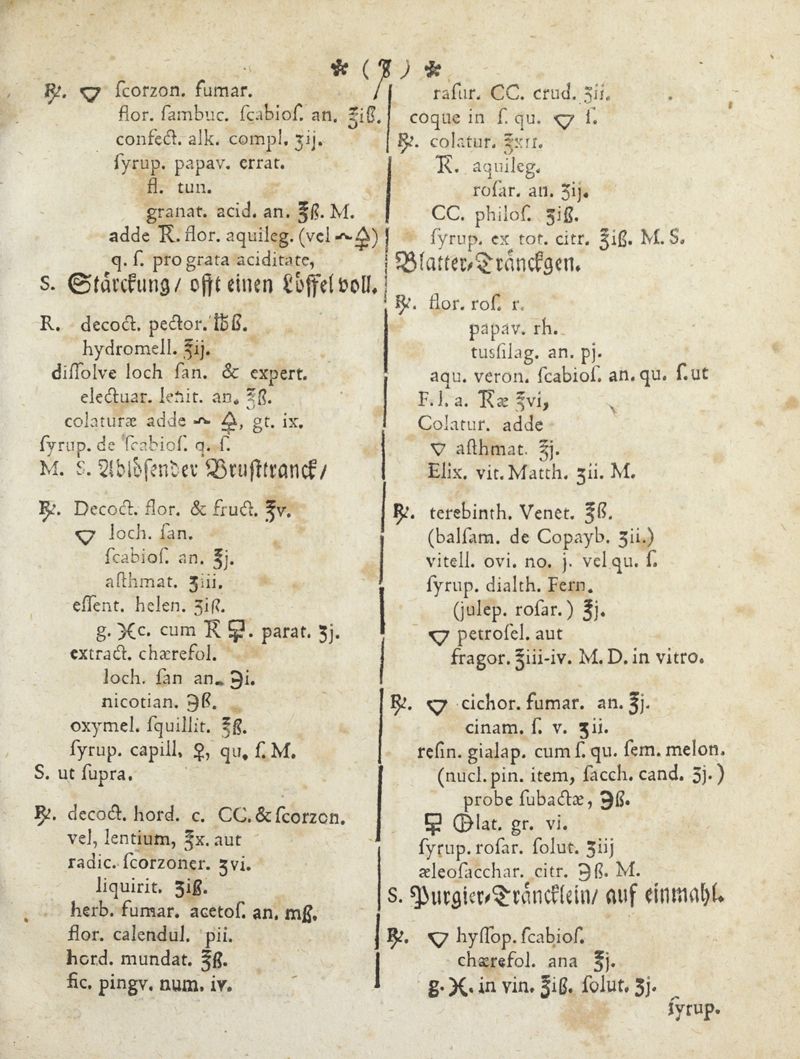 * (7) *
℞. 🜄 ſcorzon. fumar.
flor. ſambuc. ſcabioſ. an. ℥iß.
confect. alk. compl. ʒij.
ſyrup. papav. errat.
fl. tun.
granat. acid. an. ℥ß. M.
adde R. flor. aquileg. (vel
q. ſ. pro grata aciditate,
S. Stärckung/ offt einen Löffel voll.
R. decoct. pector. ℔ß.
hydromell. ℥ij.
diſſolve loch ſan. & expert.
electuar. lenit. an. ℥ß.
colaturæ adde gt. ix.
ſyrup. de ſcabioſ. q. ſ.
M. S. Ablöſender Bruſttranck/
℞. Decoct. flor. & fruct. ℥v.
🜄 loch. ſan.
ſcabioſ. an. ℥j.
aſthmat. ʒiii.
eſſent. helen. ʒiß.
g. )(c. cum R parat. ʒj.
extract. chærefol.
loch. ſan an. ℈i.
nicotian. ℈ß.
oxymel. ſquillit. ℥ß.
ſyrup. capill. ♀, qu. ſ. M.
S. ut ſupra.
℞. decoct. hord. c. CC. & ſcorzon.
vel, lentium, ℥x. aut
radic. ſcorzoner. ʒvi.
liquirit. ʒiß.
herb. fumar. acetoſ. an. mß.
flor. calendul. pii.
hord. mundat. ℥ß.
fic. pingv. num. iv.
raſur. CC. crud. ʒii.
coque in ſ. qu. 🜄 ſ.
℞. colatur. ℥xii.
R. aquileg.
roſar. an. ʒij.
CC. philoſ. ʒiß.
ſyrup. ex tot. citr. ℥iß. M. S.
Blatter-Träncfgen.
℞. flor. roſ. r.
papav. rh.
tusſilag. an. pj.
aqu. veron. ſcabioſ. an. qu. ſ. ut
F. l. a. Ræ ℥vi,
Colatur. adde
🜄 aſthmat. ℥j.
Elix. vit. Matth. ʒii. M.
℞. terebinth. Venet. ℥ß.
(balſam. de Copayb. ʒii.)
vitell. ovi. no. j. vel qu. ſ.
ſyrup. dialth. Fern.
(julep. roſar.) ℥j.
🜄 petroſel. aut
fragor. ℥iii-iv. M. D. in vitro.
℞. 🜄 cichor. fumar. an. ℥j.
cinam. ſ. v. ʒii.
reſin. gialap. cum ſ. qu. ſem. melon.
(nucl. pin. item, ſacch. cand. ʒj.)
probe ſubactæ, ℈ß.
lat. gr. vi.
ſyrup. roſar. ſolut. ʒiij
æleoſacchar. citr. ℈ß. M.
S. Purgier-Träncklein/ auf einmahl.
℞. 🜄 hyſſop. ſcabioſ.
chærefol. ana ℥j.
g. )(. in vin. ℥iß. ſolut. ʒj.
ſyrup.